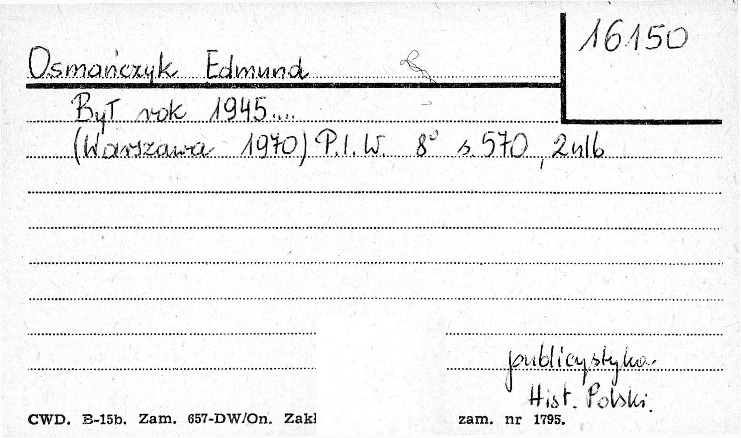 16150
Osmańczyk Edmund
Był rok 1945....
(Warszawa 1970) P.I.W. 8° s. 570, 2nlb
publicystyka
Hist. Polski.
CWD. B-15b. Zam. 657-DW/On. Zakł zam. nr 1795.